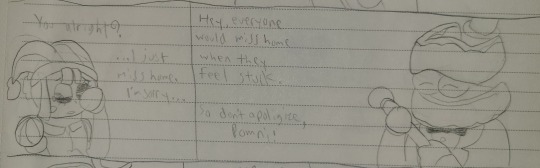 You alright?
...I just
miss home.
I'm sorry...
Hey, everyone
would miss home
when they
feel stuck.
So don't apologise,
Pomni!